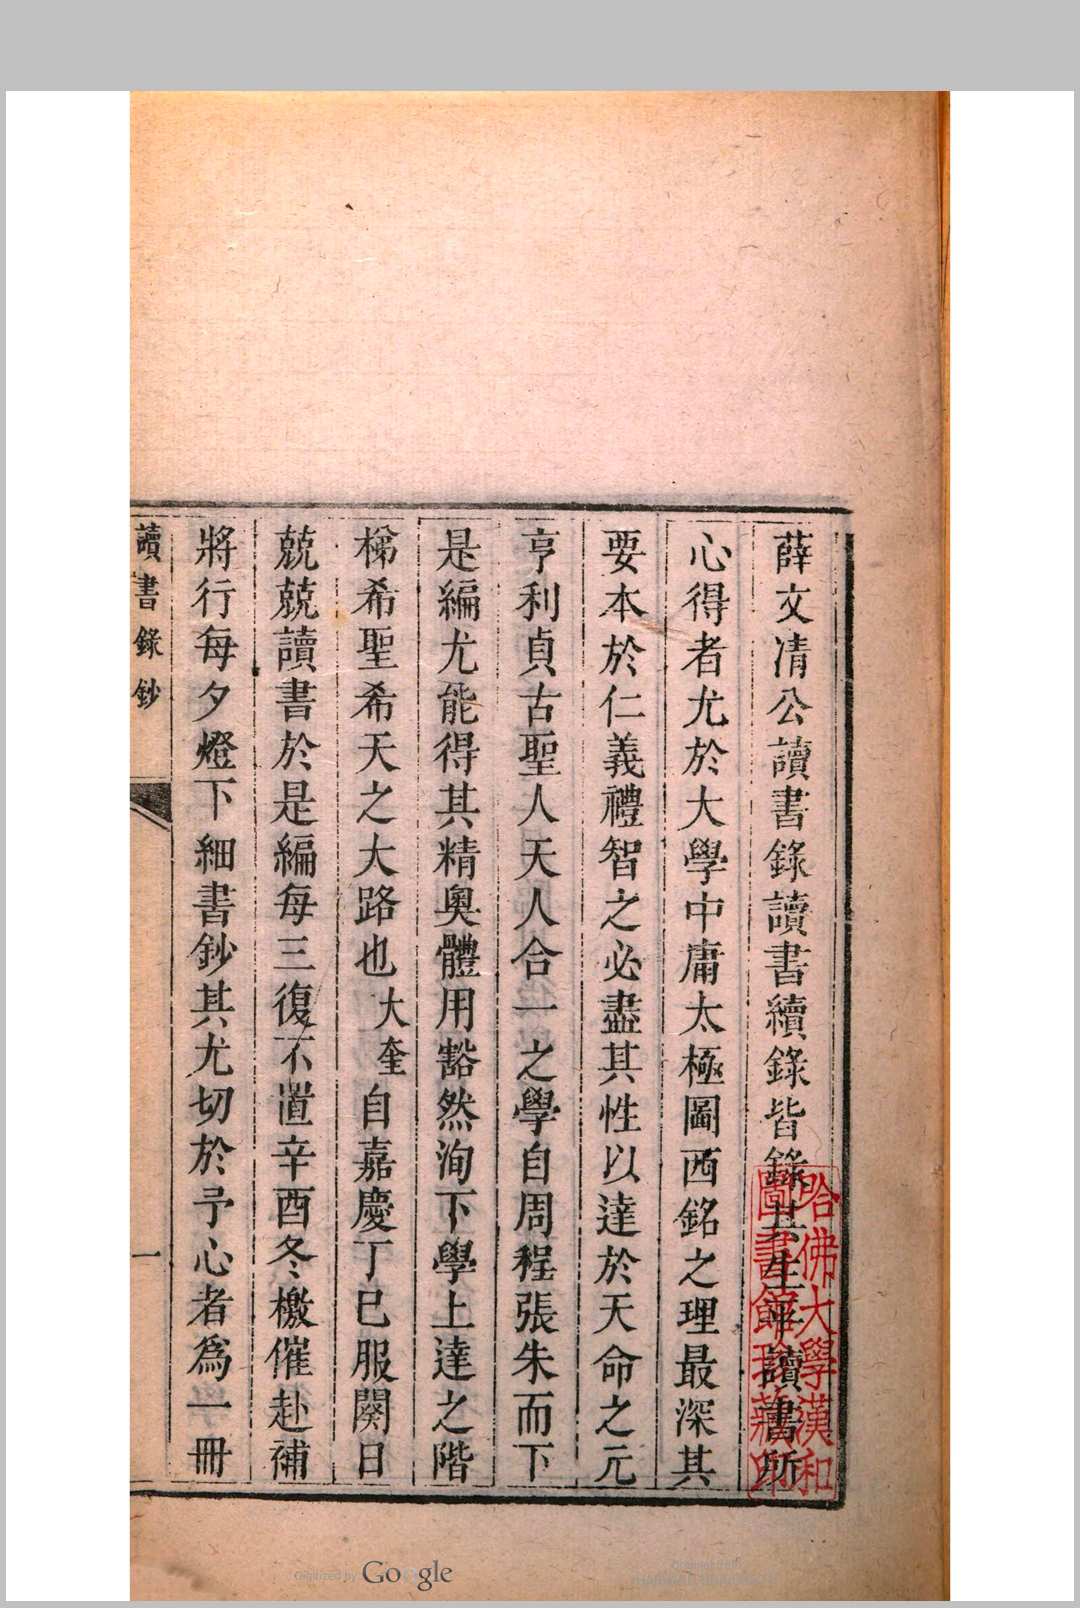 薛文清公讀書錄讀書續錄皆錄其生平讀書所
心得者尤於大學中庸太極圖西銘之理最深其
要本於仁義禮智之必盡其性以達於天命之元
亨利貞古聖人天人合一之學自周程張朱而下
是編尤能得其精奧體用豁然洵下學上達之階
梯希聖希天之大路也大奎自嘉慶丁巳服闋日
兢兢讀書於是編每三復不置辛酉冬檄催赴補
將行每夕燈下細書鈔其尤切於予心者爲一冊
讀書錄鈔
一
哈佛大學漢和
圖書館珍藏印
Digitized by Google
Original from
HARVARD UNIVERSITY